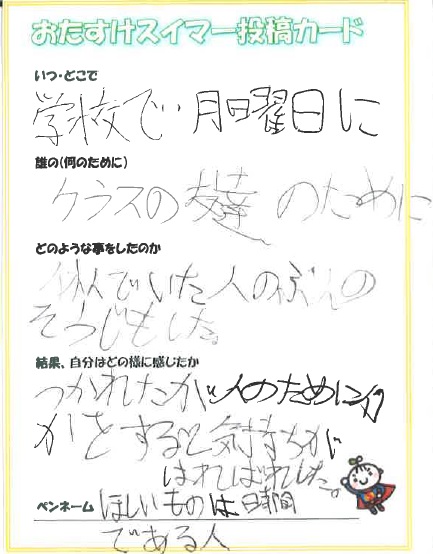 おたすけスイマー投稿カード
いつ・どこで
学校で 月曜日に
誰の(何のために)
クラスの友達のために
どのような事をしたのか
休んでいた人のぶんの
そうじもした。
結果、自分はどの様に感じたか
つかれたが人のために何
かをすると気持ちが
はればれした。
ペンネーム ほしいものは時間
である人